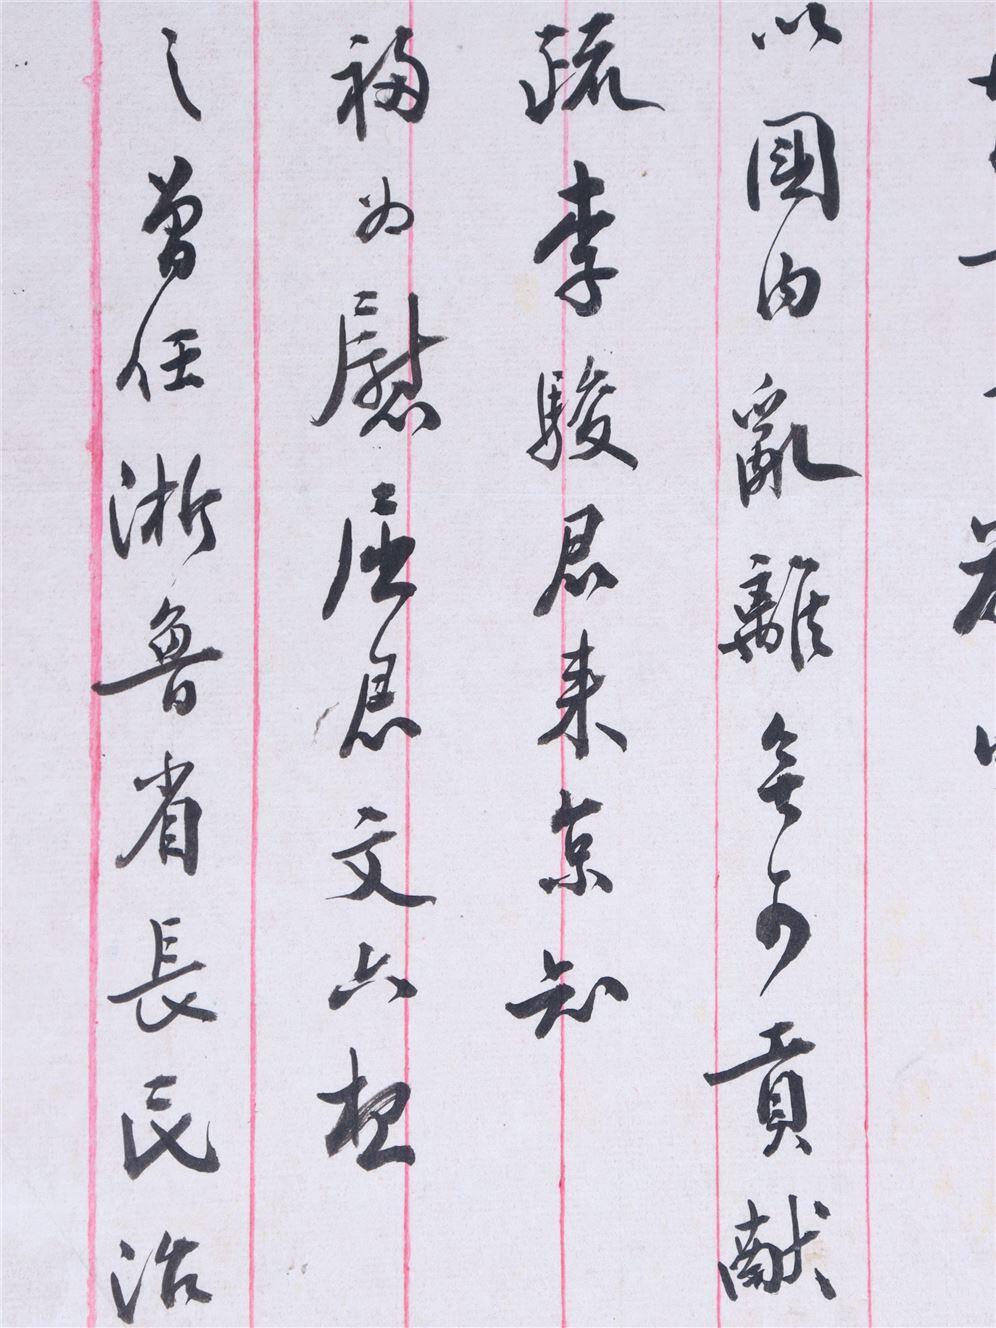 以國内亂離無可貢献
疏李駿君来京知
福为慰屈君文六极
之曾任浙魯省長民治